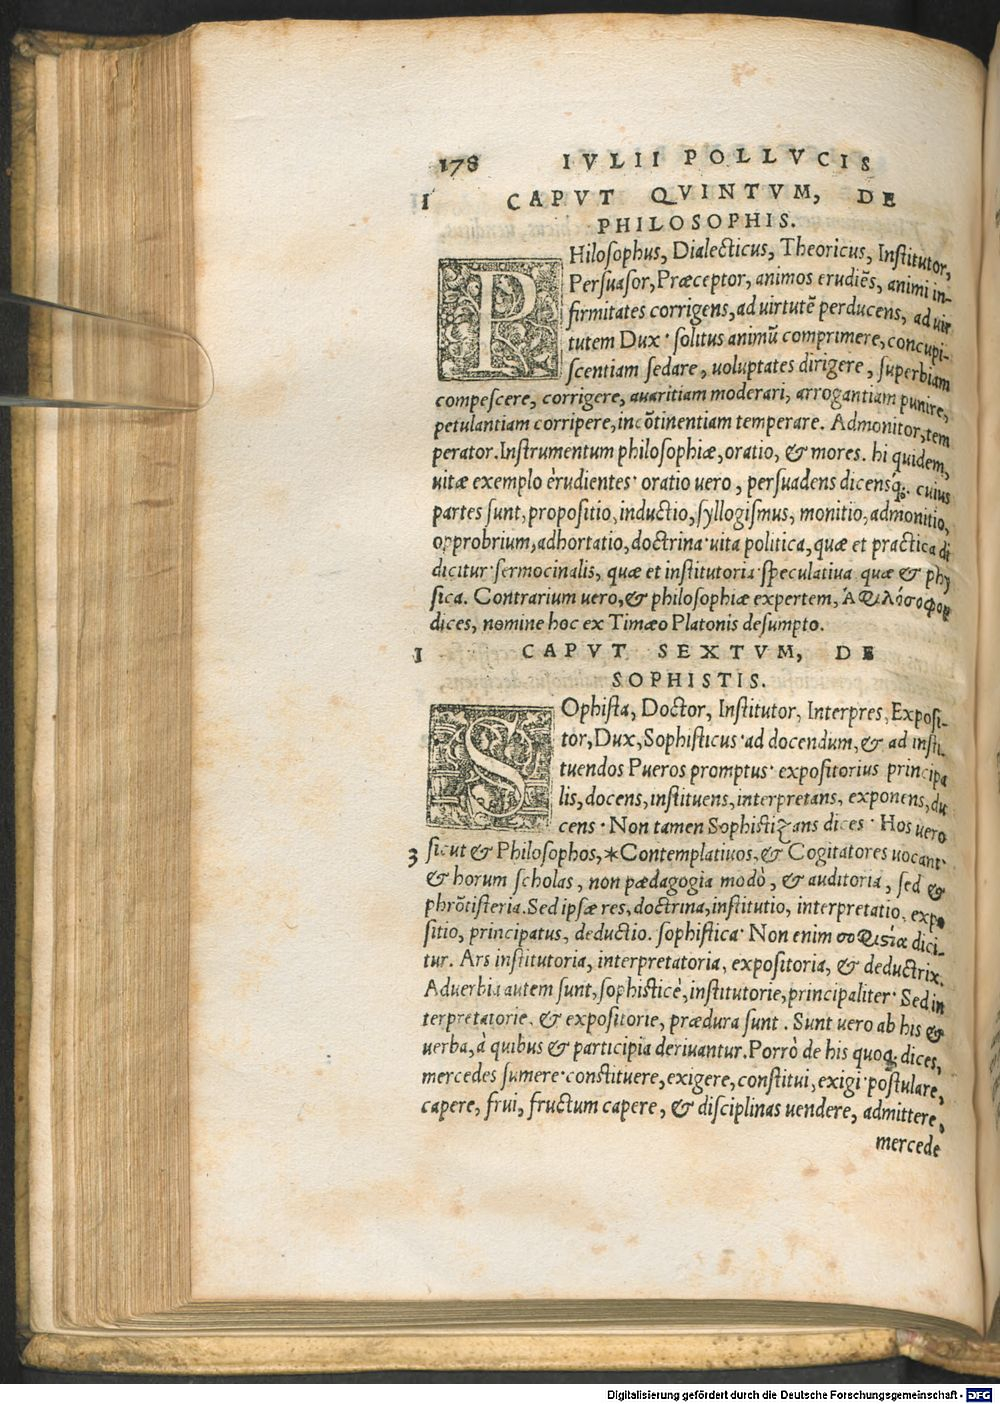 178 IVLII POLLVCIS
I CAPVT QVINTVM, DE
PHILOSOPHIS.
PHilosophus, Dialecticus, Theoricus, Institutor,
Persuasor, Præceptor, animos erudiẽs, animi in-
firmitates corrigens, ad uirtutẽ perducens, ad uir
tutem Dux · solitus animũ comprimere, concupi-
scentiam sedare, uoluptates dirigere, superbiam
compescere, corrigere, auaritiam moderari, arrogantiam punire,
petulantiam corripere, incõtinentiam temperare. Admonitor, tem
perator. Instrumentum philosophiæ, oratio, & mores. hi quidem,
uitæ exemplo èrudientes · oratio uero, persuadens dicensq́;. cuius
partes sunt, propositio, inductio, syllogismus, monitio, admonitio,
opprobrium, adhortatio, doctrina · uita politica, quæ et practica di
dicitur · sermocinalis, quæ et institutoria · speculatiua quæ & phy
sica. Contrarium uero, & philosophiæ expertem, Ἀφιλόσοφον
dices, nomine hoc ex Timæo Platonis desumpto.
I CAPVT SEXTVM, DE
SOPHISTIS.
SOphista, Doctor, Institutor, Interpres, Exposi-
tor, Dux, Sophisticus · ad docendum, & ad insti-
tuendos Pueros promptus · expositorius principa
lis, docens, instituens, interpretans, exponens, du
cens · Non tamen Sophistizans dices · Hos uero
3 sicut & Philosophos, *Contemplatiuos, & Cogitatores uocant ·
& horum scholas, non pædagogia modò, & auditoria, sed &
phrõtisteria. Sed ipsæ res, doctrina, institutio, interpretatio, expo
sitio, principatus, deductio. sophistica · Non enim σοφιστία dici-
tur. Ars institutoria, interpretatoria, expositoria, & deductrix.
Aduerbia autem sunt, sophisticè, institutorie, principaliter · Sed in
terpretatorie, & expositorie, prædura sunt. Sunt uero ab his &
uerba, à quibus & participia deriuantur. Porrò de his quoq; dices,
mercedes sumere · constituere, exigere, constitui, exigi · postulare,
capere, frui, fructum capere, & disciplinas uendere, admittere,
mercede
Digitalisierung gefördert durch die Deutsche Forschungsgemeinschaft - DFG